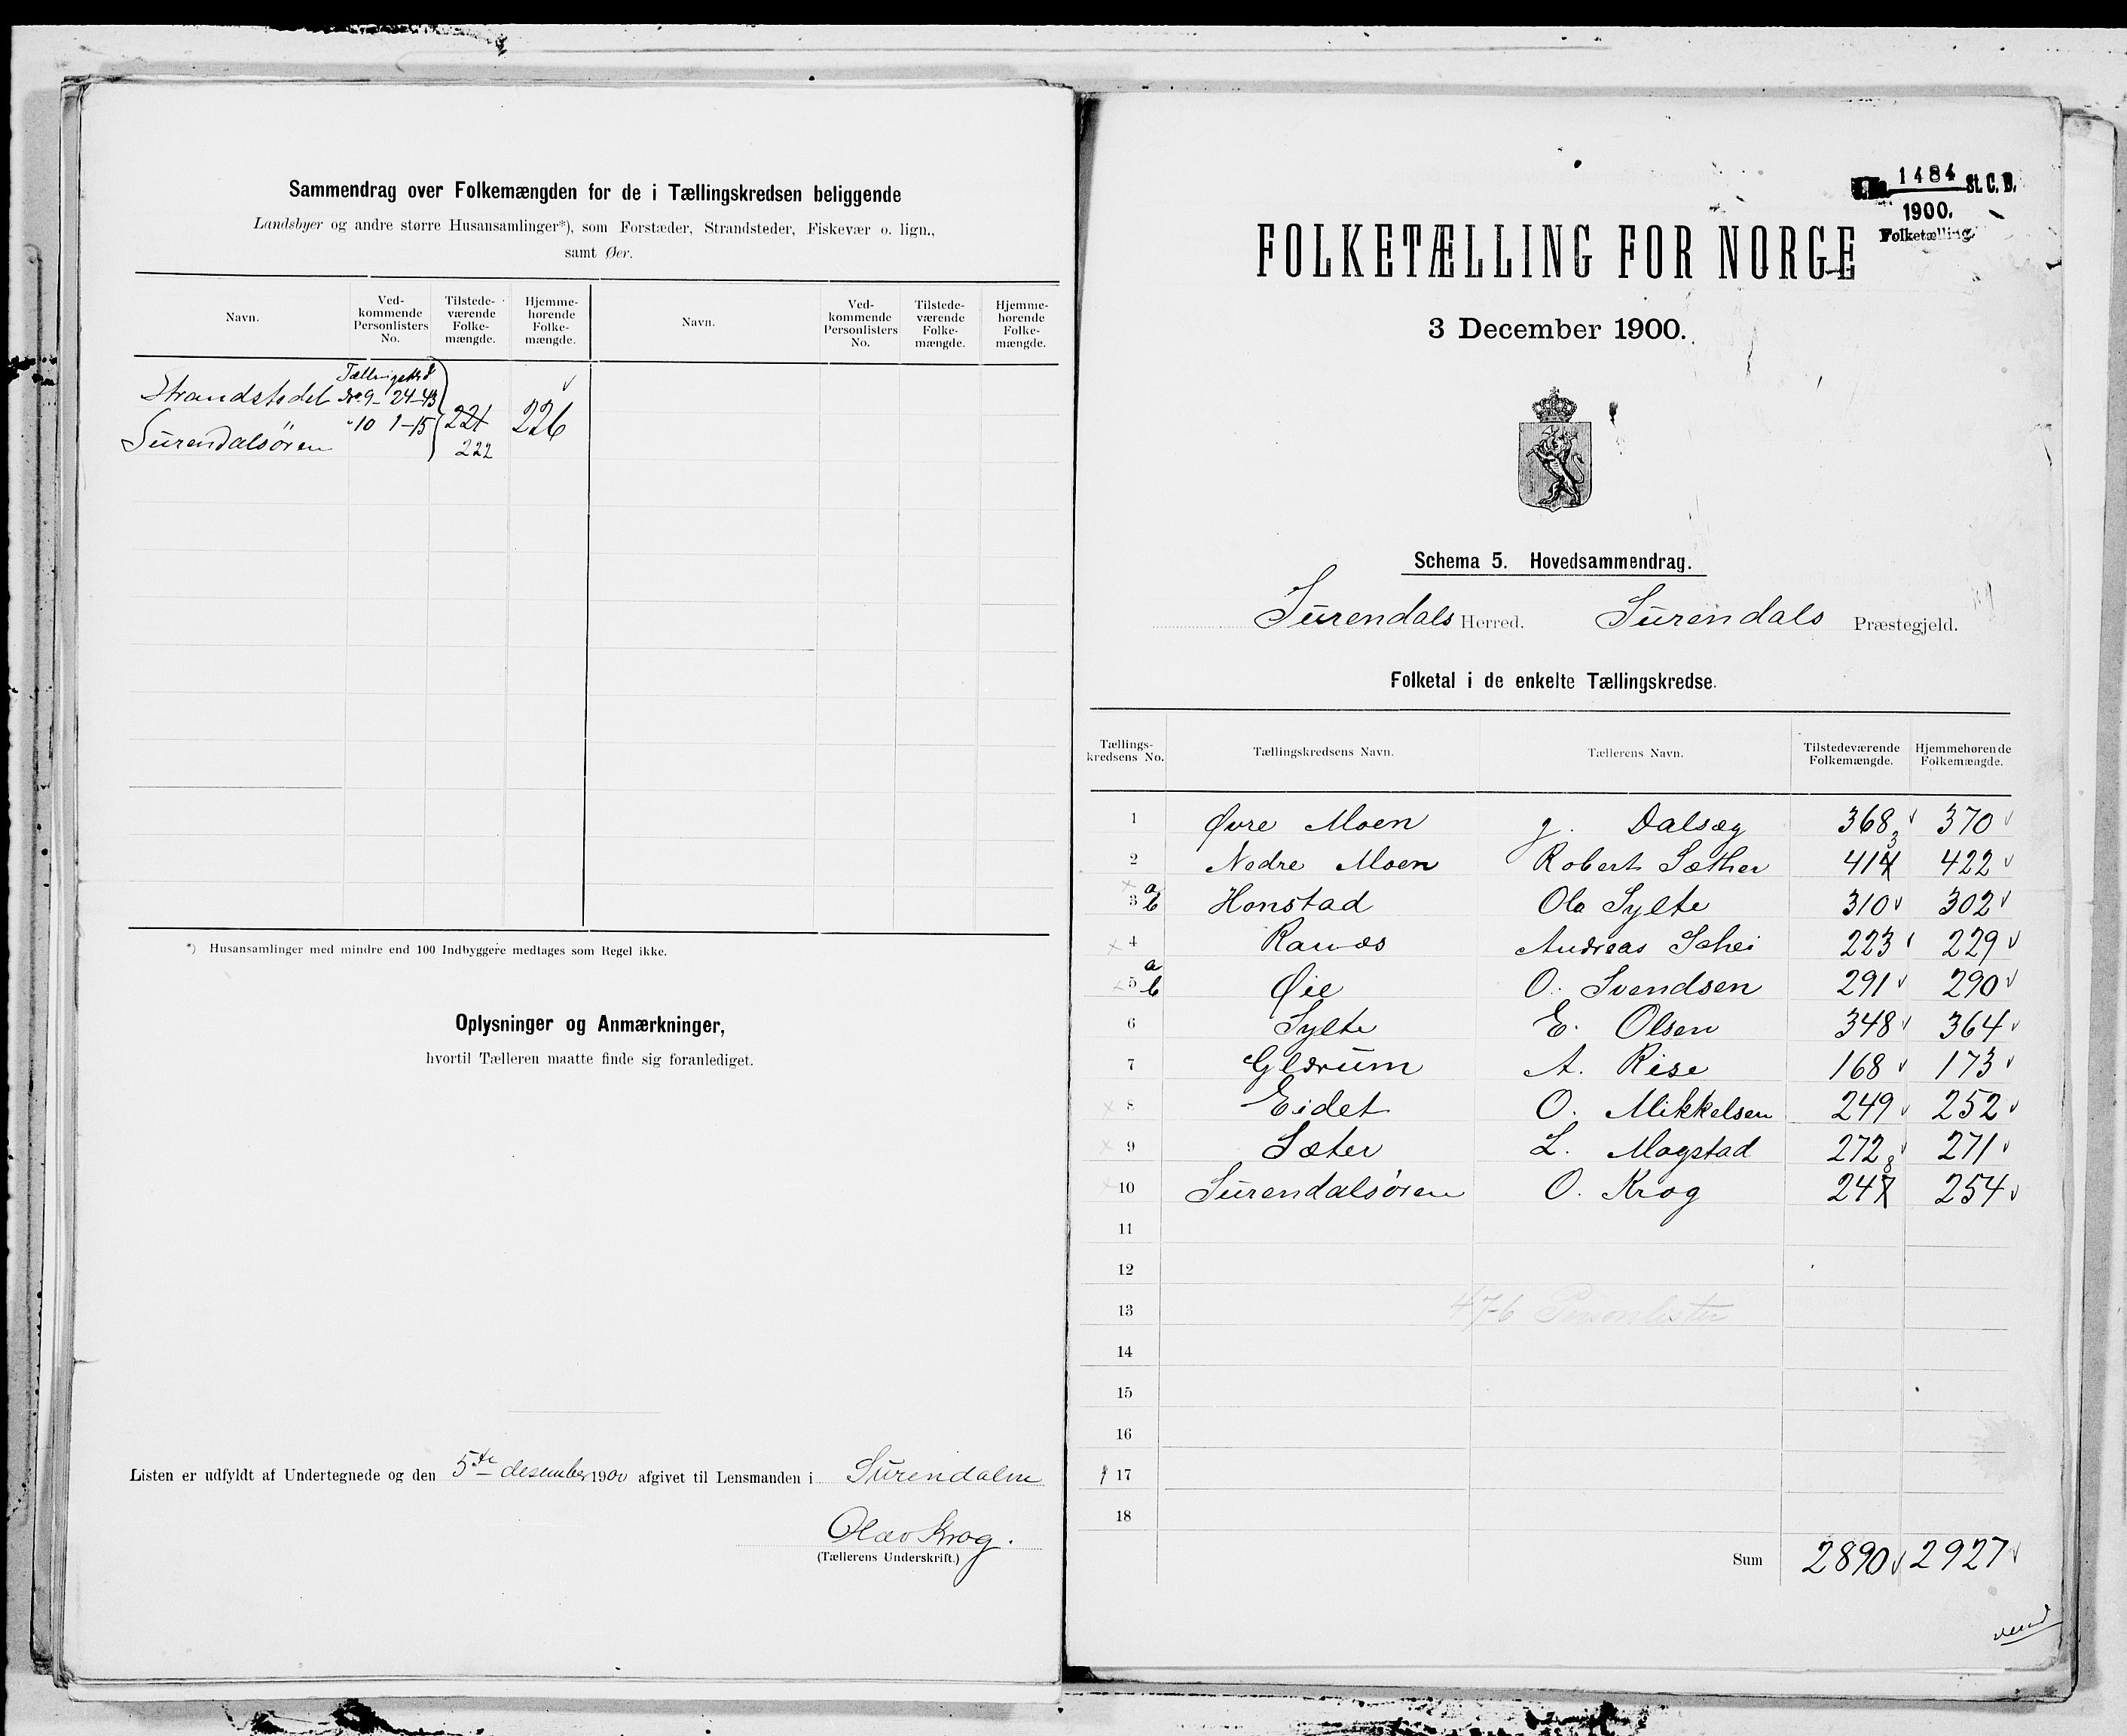 Sammendrag over Folkemængden for de i Tællingskredsen beliggende
Landsbyer og andre større Husansamlinger*), som Forstæder, Strandsteder, Fiskevær o. lign.,
samt Øer.
Navn. Ved-kommende Personlisters No. Tilstede-værende Folke-mængde. Hjemme-hørende Folke-mængde. Navn. Ved-kommende Personlisters No. Tilstede-værende Folke-mængde. Hjemme-hørende Folke-mængde.
Strandstedet No. 9 - 24-43
Surendalsören " 10 1-15 221 226
222
*) Husansamlinger med mindre end 100 Indbyggere medtages som Regel ikke.
Oplysninger og Anmærkninger,
hvortil Tælleren maatte finde sig foranlediget.
Listen er udfyldt af Undertegnede og den 5te desember 1900 afgivet til Lensmanden i Surendalen
Olav Krog.
(Tællerens Underskrift.)
1484 St. C. B.
1900.
Folketælling.
FOLKETÆLLING FOR NORGE
3 December 1900.
Schema 5. Hovedsammendrag.
Surendals Herred. Surendals Præstegjeld.
Folketal i de enkelte Tællingskredse.
Tællings-kredsens No. Tællingskredsens Navn. Tællerens Navn. Tilstedeværende Folkemængde. Hjemmehørende Folkemængde.
1 Øvre Moen J. Dalsæg 368 370
2 Nedre Moen Robert Sæther 413 422
3 a b Honstad Ola Sylte 310 302
4 Ranæs Andreas 223 229
5 a b Øie O. Svendsen 291 290
6 Sylte E. Olsen 348 364
7 Glærum A. Rise 168 173
8 Eidet O. Mikkelsen 249 252
9 Sæter L. Mogstad 272 271
10 Surendalsören O. Krog 248 254
11
12
13 476 Personlister
14
15
16
17
18
Sum 2890 2927
vend